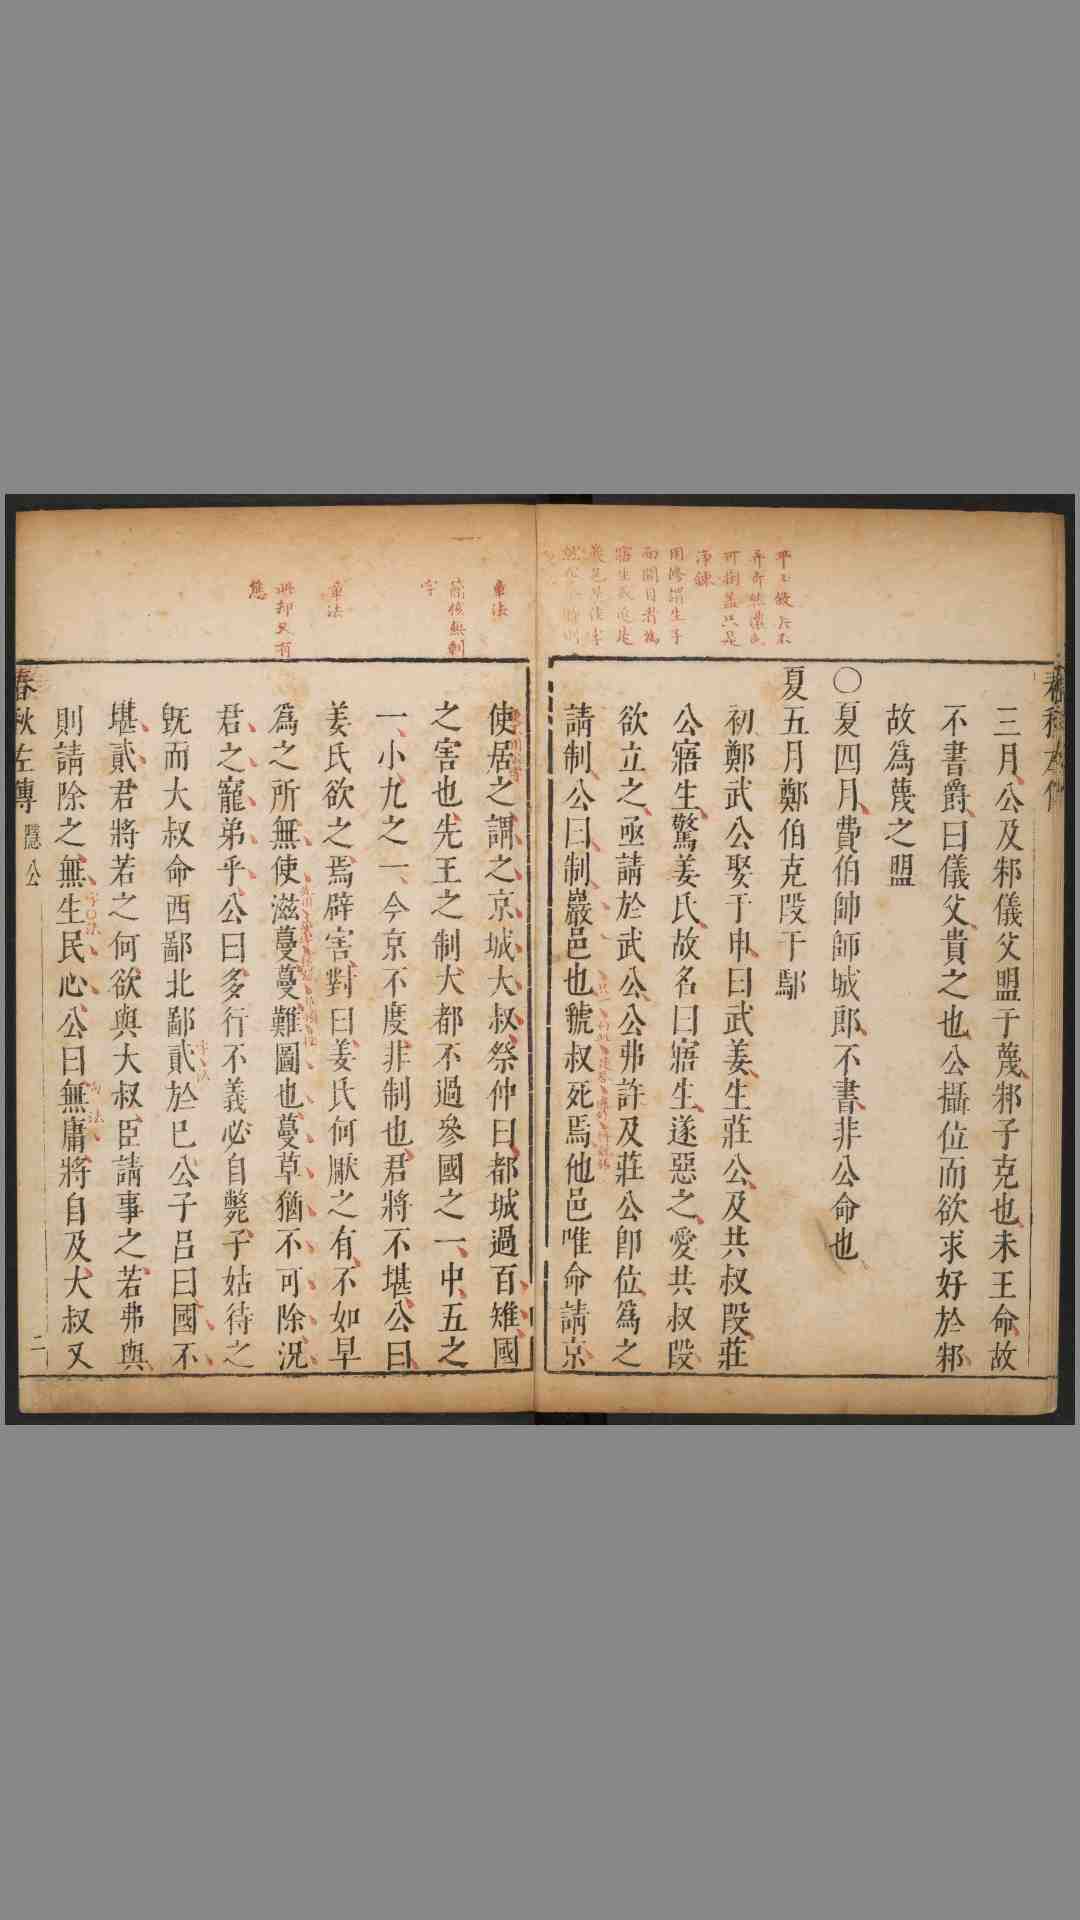 三月公及邾儀父盟于蔑邾子克也未王命故
不書爵曰儀父貴之也公攝位而欲求好於邾
故爲蔑之盟
〇夏四月費伯帥師城郎不書非公命也
夏五月鄭伯克段于鄢
初鄭武公娶于申曰武姜生莊公及共叔段莊
公寤生驚姜氏故名曰寤生遂惡之愛共叔段
欲立之亟請於武公公弗許及莊公即位爲之
請制公曰制巖邑也虢叔死焉他邑唯命請京
章法
字
章法
態
使居之謂之京城大叔祭仲曰都城過百雉國
之害也先王之制大都不過參國之一中五之
一小九之一今京不度非制也君將不堪公曰
姜氏欲之焉辟害對曰姜氏何厭之有不如早
爲之所無使滋蔓蔓難圖也蔓草猶不可除況
君之寵弟乎公曰多行不義必自斃子姑待之
旣而大叔命西鄙北鄙貳於已公子呂曰國不
堪貳君將若之何欲與大叔臣請事之若弗與
則請除之無生民心公曰無庸將自及大叔又
春秋左傳
隱公
二